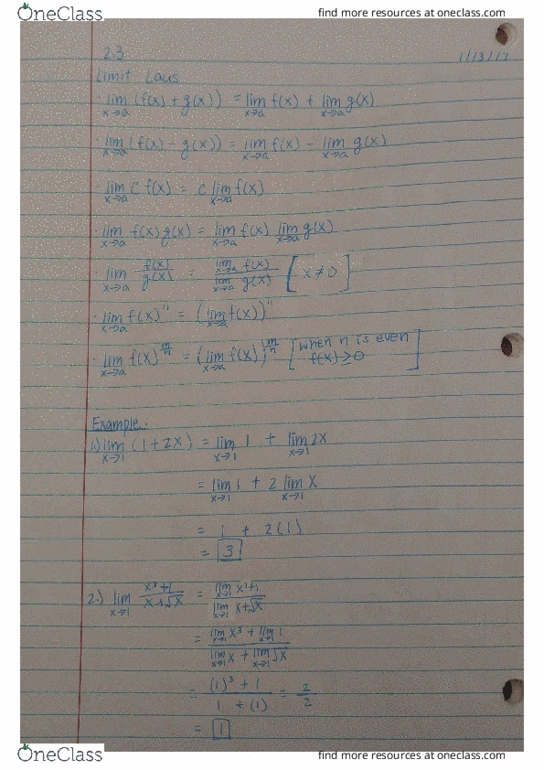 OneClass
find more resources at oneclass.com
2.3
1/13/17
Limit Laws
· lim x→a (f(x) + g(x)) = lim x→a f(x) + lim x→a g(x)
· lim x→a (f(x) - g(x)) = lim x→a f(x) - lim x→a g(x)
· lim x→a c f(x) = c lim x→a f(x)
· lim x→a f(x) g(x) = lim x→a f(x) lim x→a g(x)
· lim x→a f(x)/g(x) = lim x→a f(x) / lim x→a g(x) [x ≠ 0]
· lim x→a f(x)^n = (lim x→a f(x))^n
· lim x→a f(x)^(m/n) = (lim x→a f(x))^(m/n) [when n is even
f(x) ≥ 0]
Example:
1.) lim x→1 (1 + 2x) = lim x→1 1 + lim x→1 2x
= lim x→1 1 + 2 lim x→1 x
= 1 + 2(1)
= 3
2.) lim x→1 (x³+1)/(x+√x) = lim x→1 x³+1 / lim x→1 x+√x
= lim x→1 x³ + lim x→1 1 / lim x→1 x + lim x→1 √x
= (1)³ + 1 / 1 + (1) = 2/2
= 1
OneClass
find more resources at oneclass.com